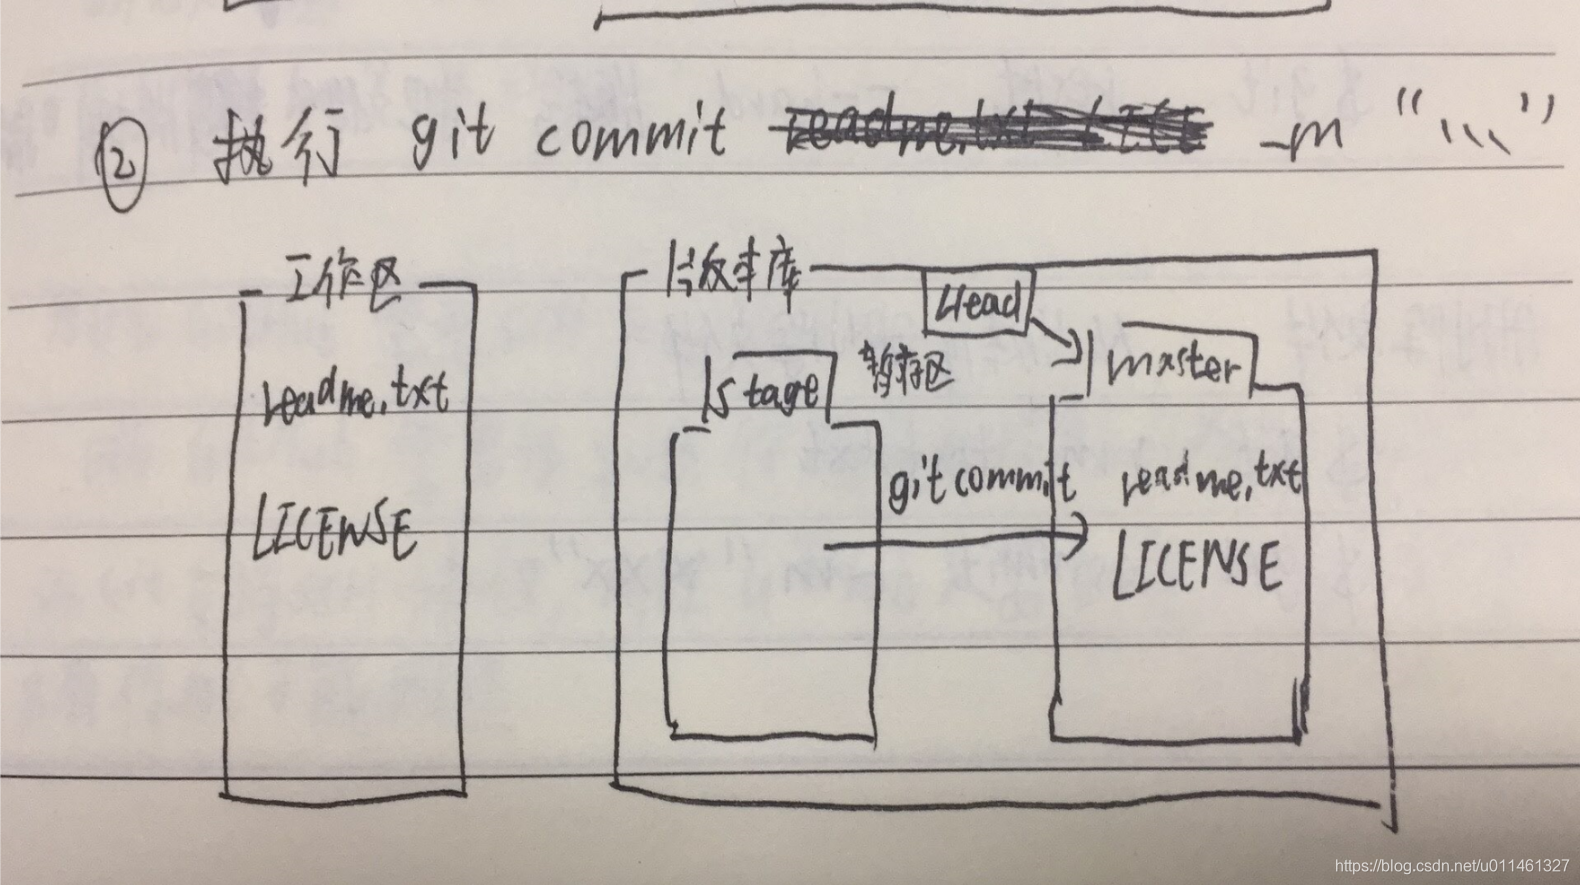 ② 执行 git commit -m "、、、"
工作区
版本库
Head
master
stage
暂存区
readme.txt
LICENSE
git commit
readme.txt
LICENSE
https://blog.csdn.net/u011461327